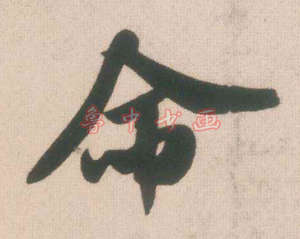 命
鲁中书画